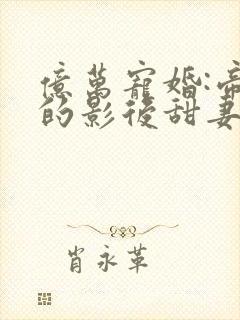 億萬寵婚:帝
的影後甜妻
肖永革